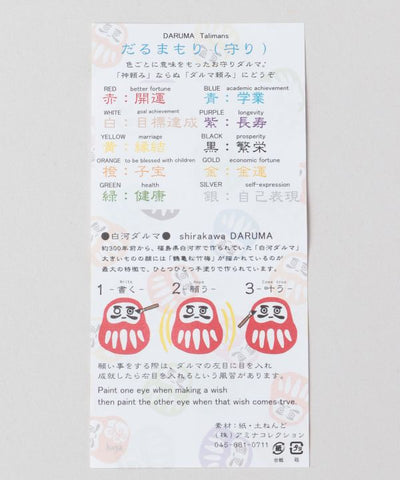 DARUMA Talimans
だるまもり(守り)
色ごとに意味をもったお守りダルマ。
「神頼み」ならぬ「ダルマ頼み」にどうぞ
RED better fortune
赤：開運
BLUE academic achievement
青：学業
WHITE goal achievement
白：目標達成
PURPLE longevity
紫：長寿
YELLOW marriage
黄：縁結
BLACK prosperity
黒：繁栄
ORANGE to be blessed with children
橙：子宝
GOLD economic fortune
金：金運
GREEN health
緑：健康
SILVER self-expression
銀：自己表現
●白河ダルマ● shirakawa DARUMA
約300年前から、福島県白河市で作られていた「白河ダルマ」
大きいものの顔には「鶴亀松竹梅」が描かれているのが
最大の特徴で、ひとつひとつ手塗りで作られています。
Write
1-書く-
Hope
2-願う-
Come true
3-叶う-
願い事をする際は、ダルマの左目に目を入れ
成就したら右目を入れるという風習があります。
Paint one eye when making a wish
then paint the other eye when that wish comes trve.
素材：紙・土ねんど
(株)アミナコレクション
045-681-0711
紙
台紙
プラ
袋